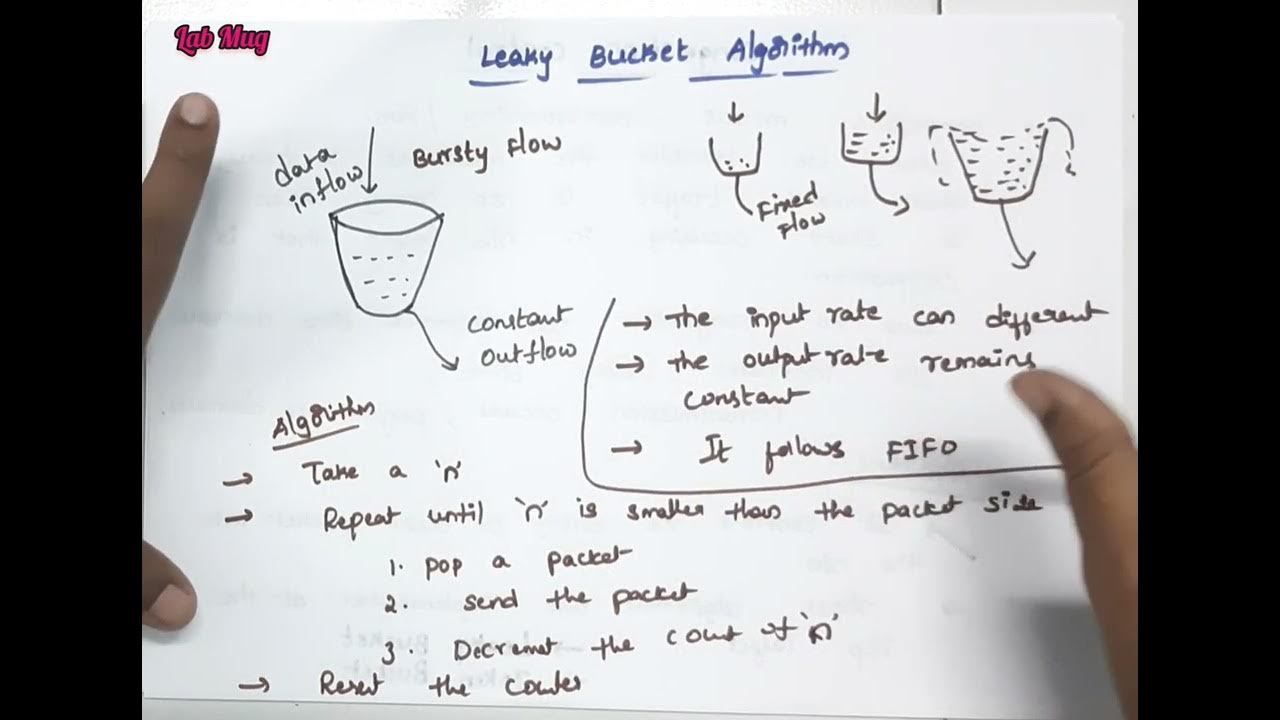 Lab Mug
Leaky Bucket Algorithm
data
inflow
Bursty flow
constant
outflow
Fixed
flow
→ The input rate can different
→ The output rate remains
constant
→ It follows FIFO
Algorithm
→ Take a 'n'
→ Repeat until 'n' is smaller than the packet side
1. pop a packet
2. send the packet
3. Decremet the count of 'n'
→ Reset the counter